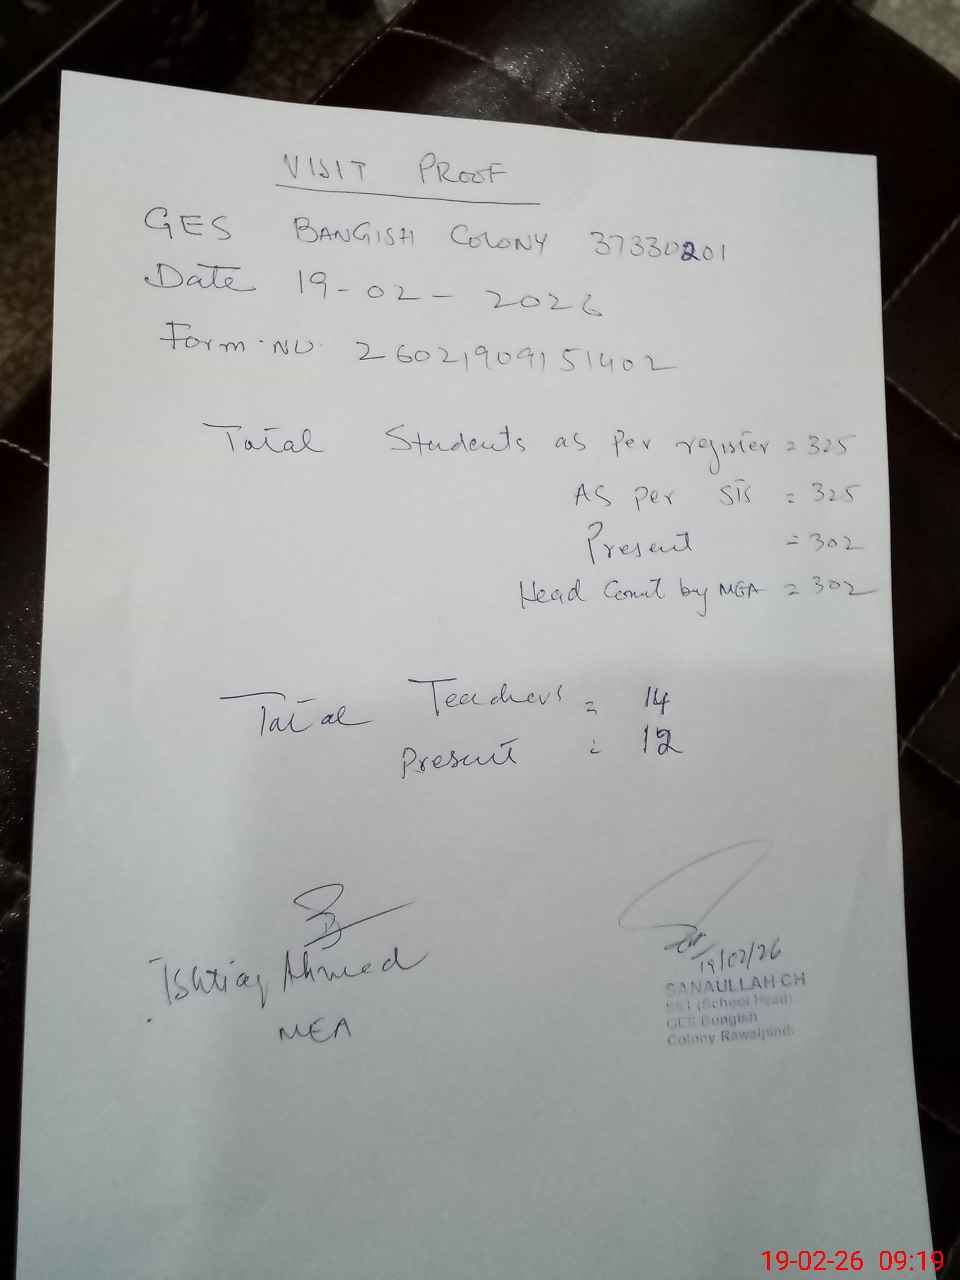 VISIT PROOF
GES BANGISH COLONY 37330201
Date 19-02-2026
Form.NO. 26021909151402
Total Students as per register = 325
AS per SIS = 325
Present = 302
Head Count by MEA = 302
Total Teachers = 14
Present = 12
19/02/26
Ishtiaq Ahmed
MEA
SANAULLAH CH
SST (School Head)
GES Bangish
Colony Rawalpindi
19-02-26 09:19